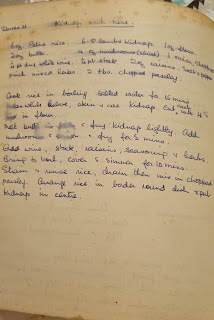 Serves 4. Kidney with rice.
6oz Patna rice. 6-8 lambs kidneys, 1oz flour
2oz butter 4 oz mushrooms (sliced) 1 onion chopped
¼ pt dry white wine, ¼ pt stock 2oz raisins
pinch mixed herbs. 2 tbs. chopped parsley
Cook rice in boiling salted water for 15 mins
Meanwhile halve, skin + core kidneys. Cut into
in flour.
Melt butter in + fry kidneys lightly. Add
mushrooms + onion + fry for 5 mins.
Add wine, stock, raisins, seasoning + herbs.
Bring to boil, cover & simmer for 10 mins.
Strain + rinse rice, drain then mix in chopped
parsley. Arrange rice in border round dish + put
kidneys in centre.